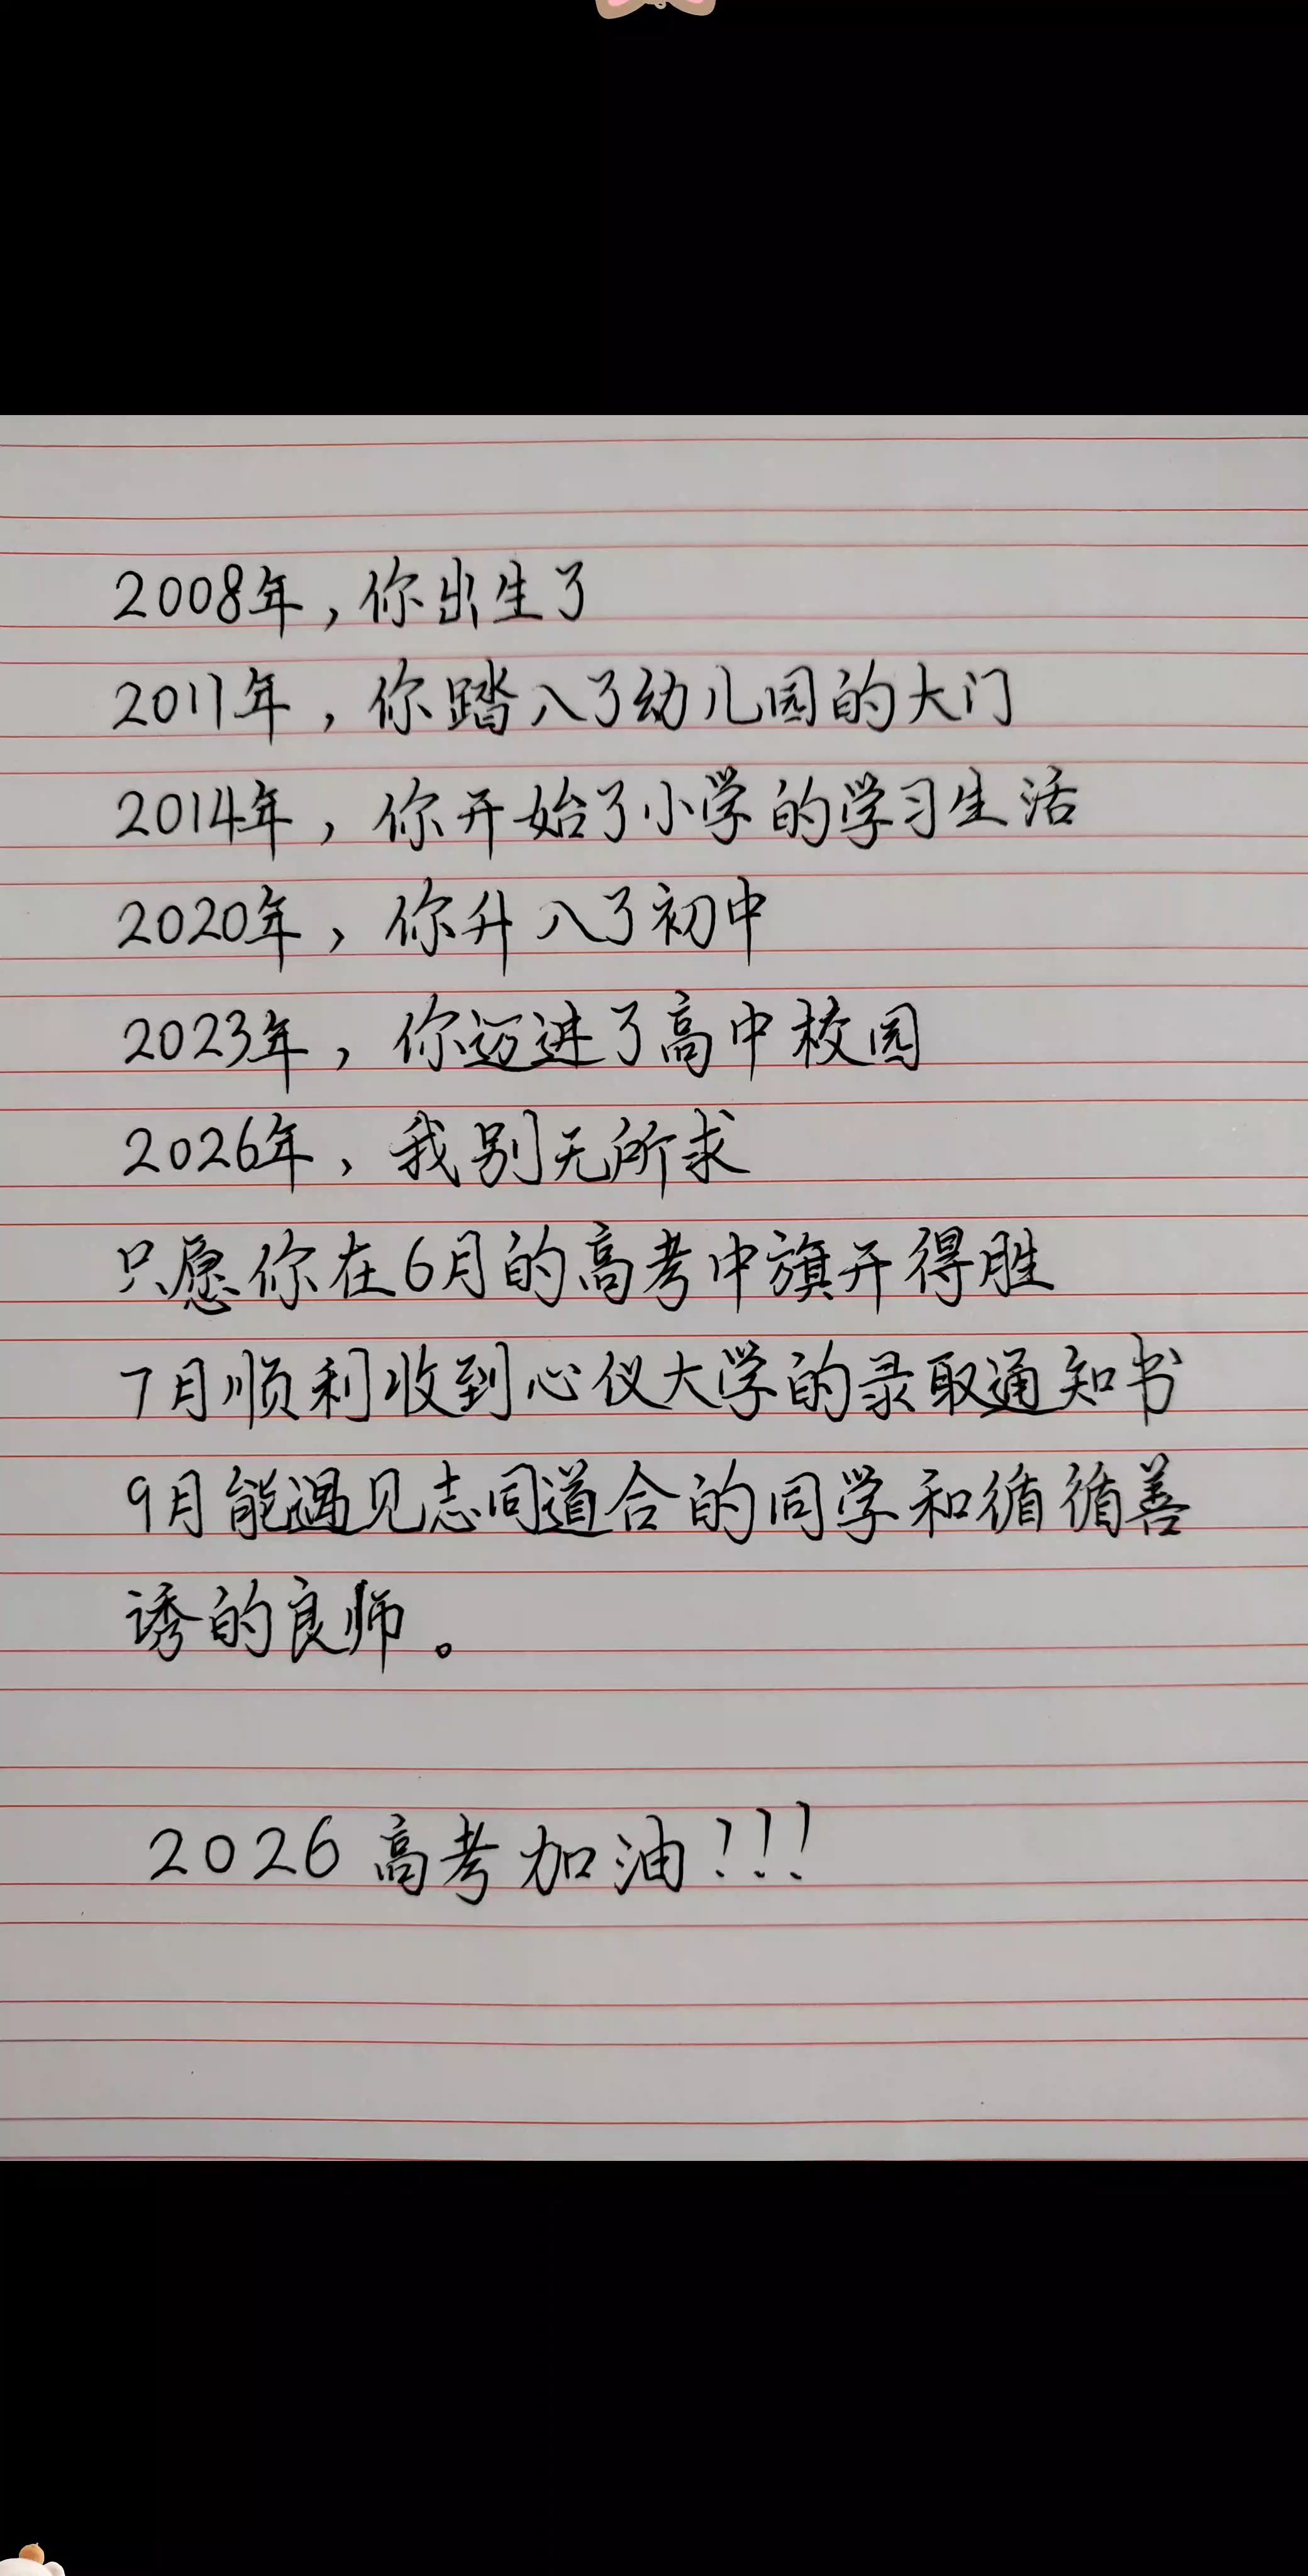 2008年，你出生了
2011年，你踏入了幼儿园的大门
2014年，你开始了小学的学习生活
2020年，你升入了初中
2023年，你迈进了高中校园
2026年，我别无所求
只愿你在6月的高考中旗开得胜
7月顺利收到心仪大学的录取通知书
9月能遇见志同道合的同学和循循善
诱的良师。
2026高考加油!!!